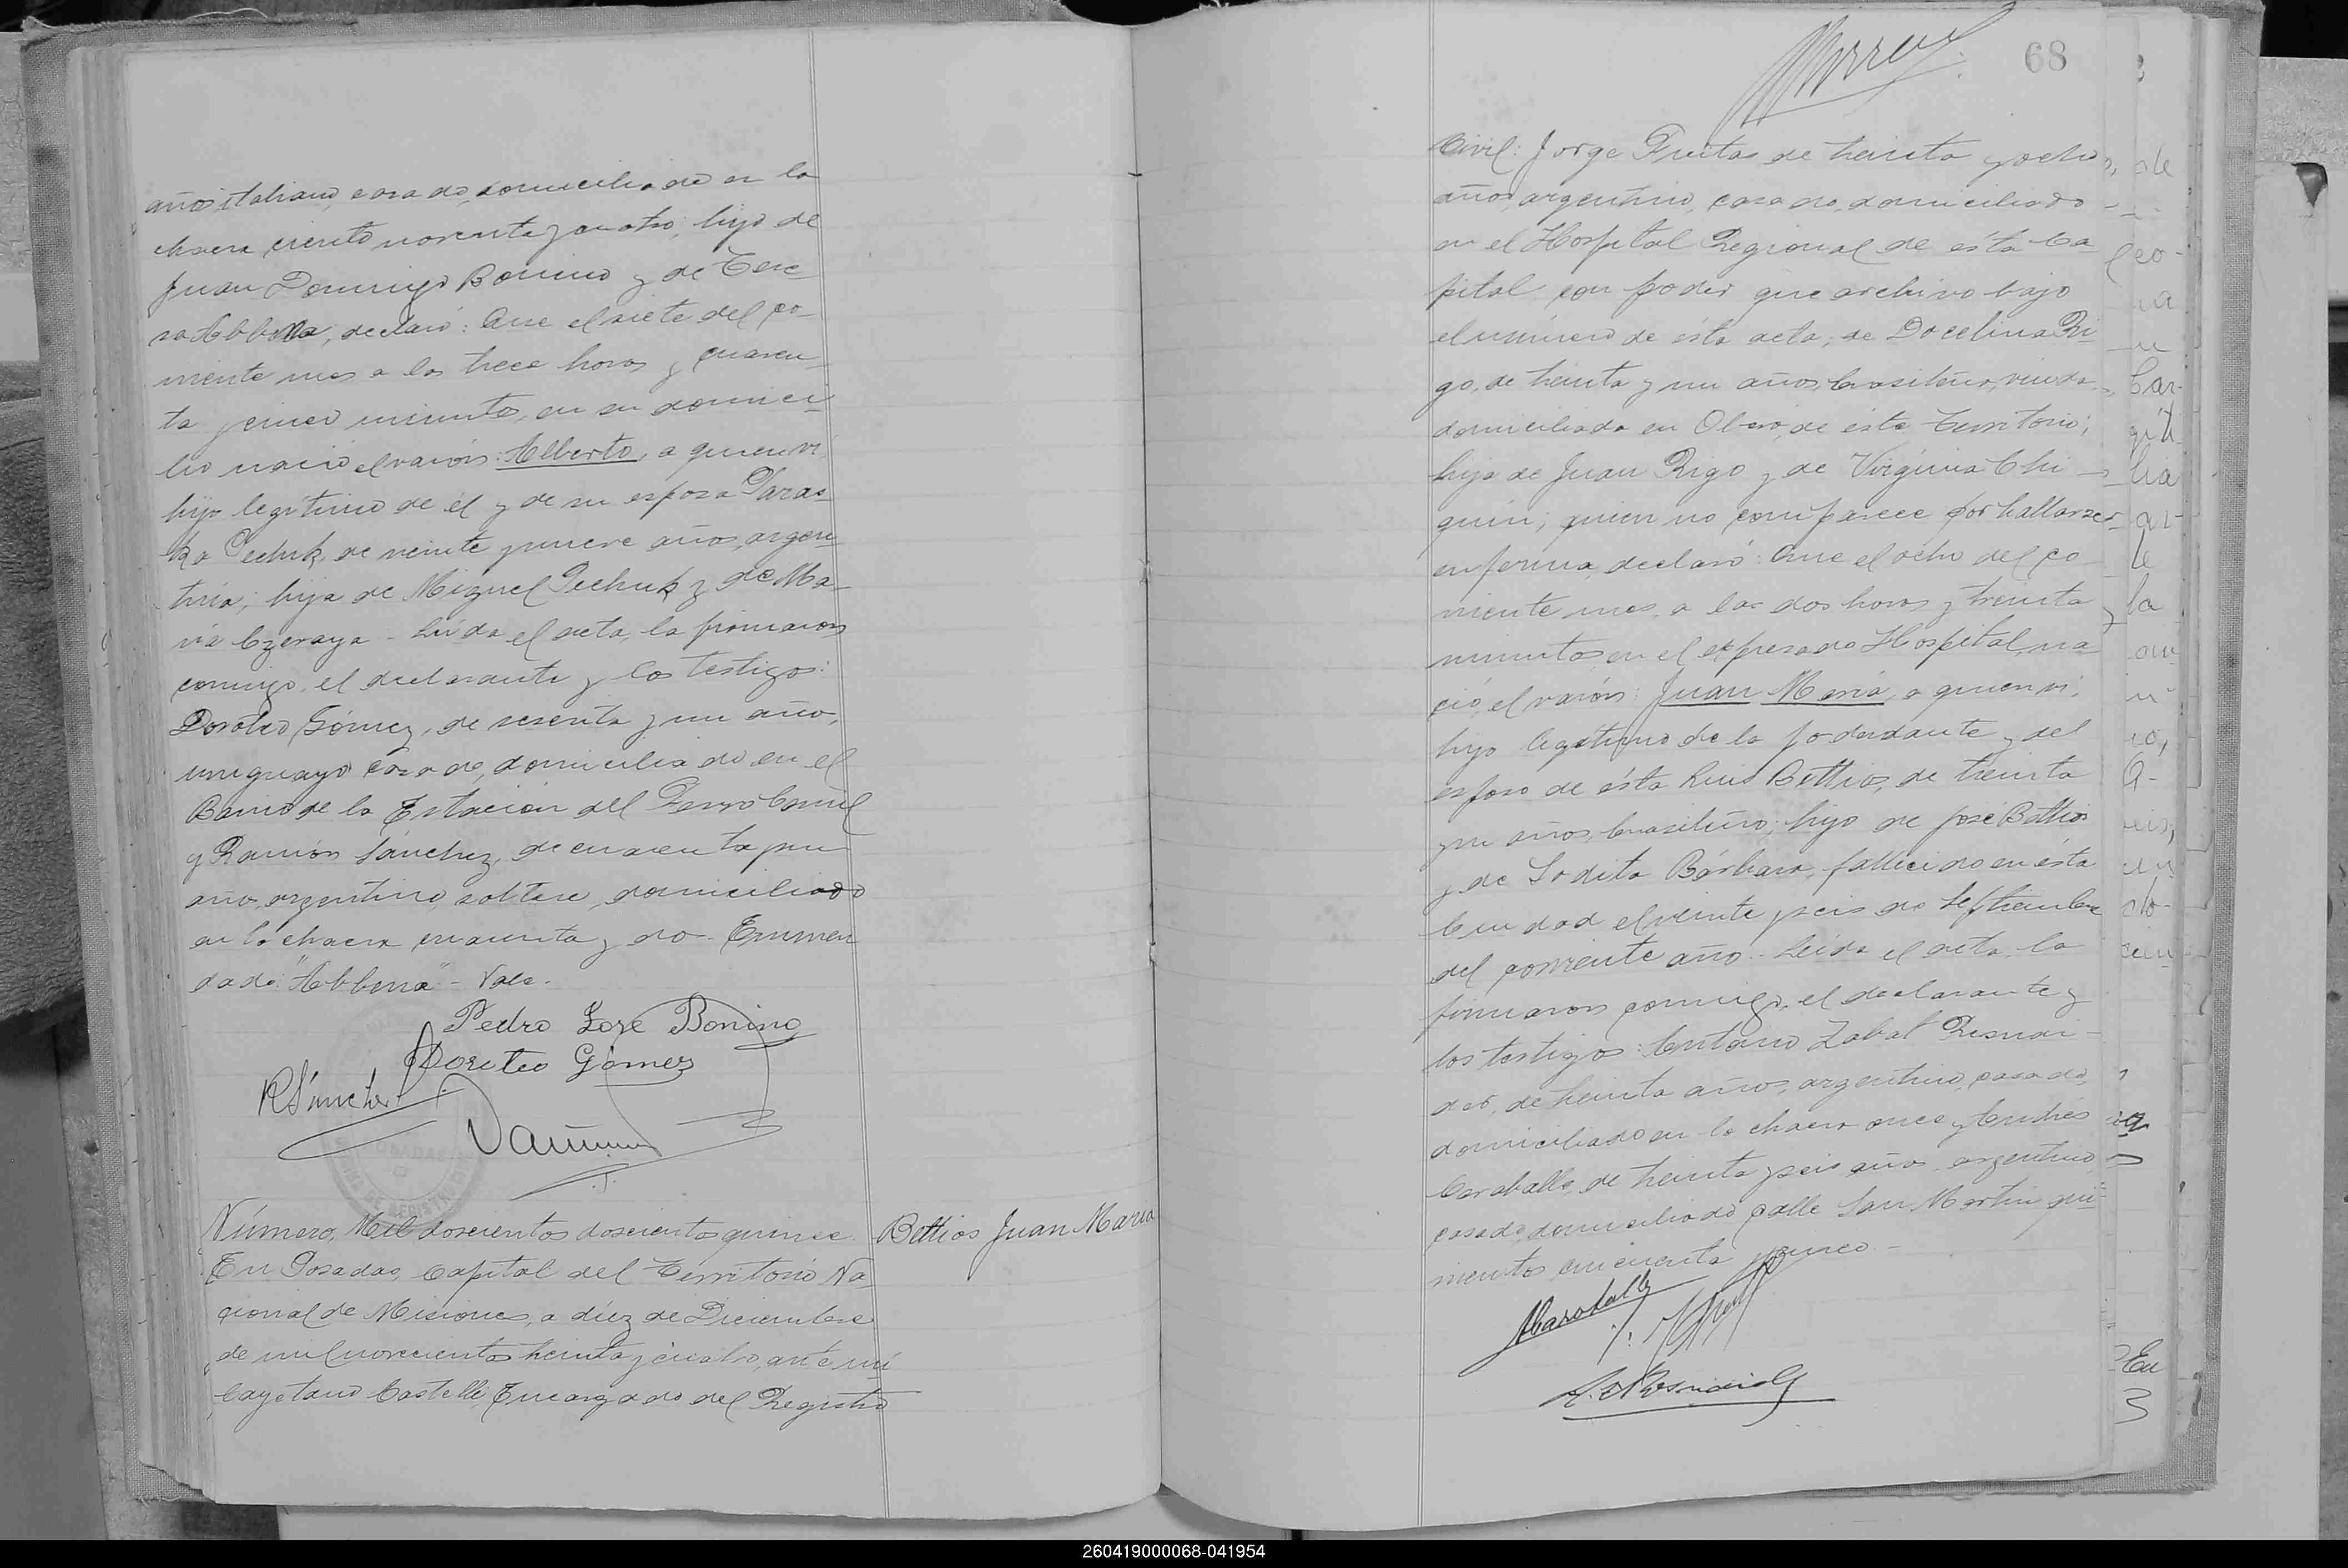 años, italiano, casado, domiciliado en la
chacra ciento noventa y cuatro, hijo de
Juan Domingo Bonino y de Tere-
sa Abbena, declaró: Que el siete del co-
rriente mes a las trece horas y cuaren-
ta y cinco minutos, en su domici-
lio nació el varón: Alberto, a quien vi,
hijo legítimo de él y de su esposa Paras-
ka Pechuk, de veinte y nueve años, argen-
tina; hija de Miguel Pechuk y de Ma-
ría Czeraya - Leída el acta, la firmaron
conmigo, el declarante y los testigos:
Doroteo Gómez, de sesenta y un año,
uruguayo, casado, domiciliado en el
Barrio de la Estación del Ferro Carril
y Ramón Sánchez, de cuarenta y un
año, argentino, soltero, domiciliado
en la chacra cuarenta y dos - Enmen
dado: "Abbena" - Vale.
Pedro Jose Bonino
Doroteo Gómez
RSánchez
POSADAS
Número, Mil doscientos doscientos quince
Bettios Juan Maria
En Posadas, Capital del Territorio Na-
cional de Misiones, a diez de Diciembre
de mil novecientos treinta y cuatro, ante mí
Cayetano Castelli, Encargado del Registro
68
Civil: Jorge Freitas de treinta y ocho
años, argentino, casado, domiciliado
en el Hospital Regional de ésta Ca-
pital con poder que archivo bajo
el número de ésta acta, de Docelina Ri-
go, de treinta y un años, brasileña, viuda,
domiciliada en Oberá, de éste Territorio,
hija de Juan Rigo y de Virginia Chi-
quin; quien no comparece por hallarse
enferma, declaró: Que el ocho del co-
rriente mes, a las dos horas y treinta
minutos, en el expresado Hospital, na-
ció el varón: Juan María, a quien vi,
hijo legítimo de la poderdante y del
esposo de ésta Luis Bettios, de treinta
y un años, brasileño; hijo de José Bettios
y de Bárbara, fallecido en ésta
Ciudad el veinte y seis de Septiembre
del corriente año. - Leída el acta, la
firmaron conmigo, el declarante y
los testigos: Antonio Zabal Resnai-
der, de treinta años, argentino, casado,
domiciliado en la chacra once y Andrés
Caraballo, de treinta y seis años, argentino,
casado, domiciliado calle San Martín qui-
nientos cincuenta y cinco -
260419000068-041954